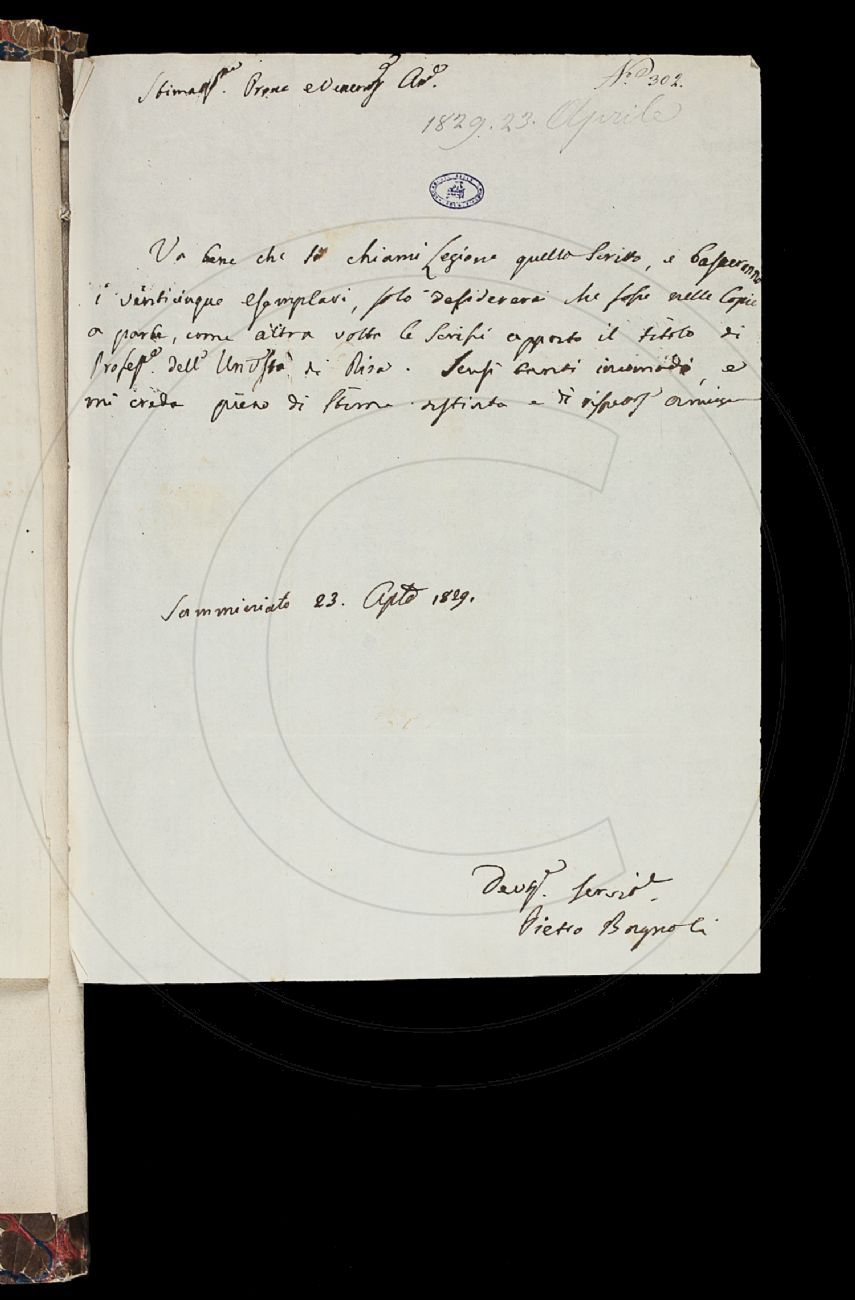 Stimatiss.mo Prone e Veneros Am.o
N.o 302.
1829. 23. Aprile
Va bene che si chiami Lezione quello Scritto, e basteranno
i venticinque esemplari, solo desidererei che fosse nelle Copie
a parte, come altra volta le Scrissi apposto il titolo di
Profess.e dell' Un.stà di Pisa. Scusi tanti incomodi, e
mi creda pieno di Stima distinta e di rispettos amicizia
Samminiato 23. Aple 1829.
Devo. Servito.e
Pietro Bagnoli